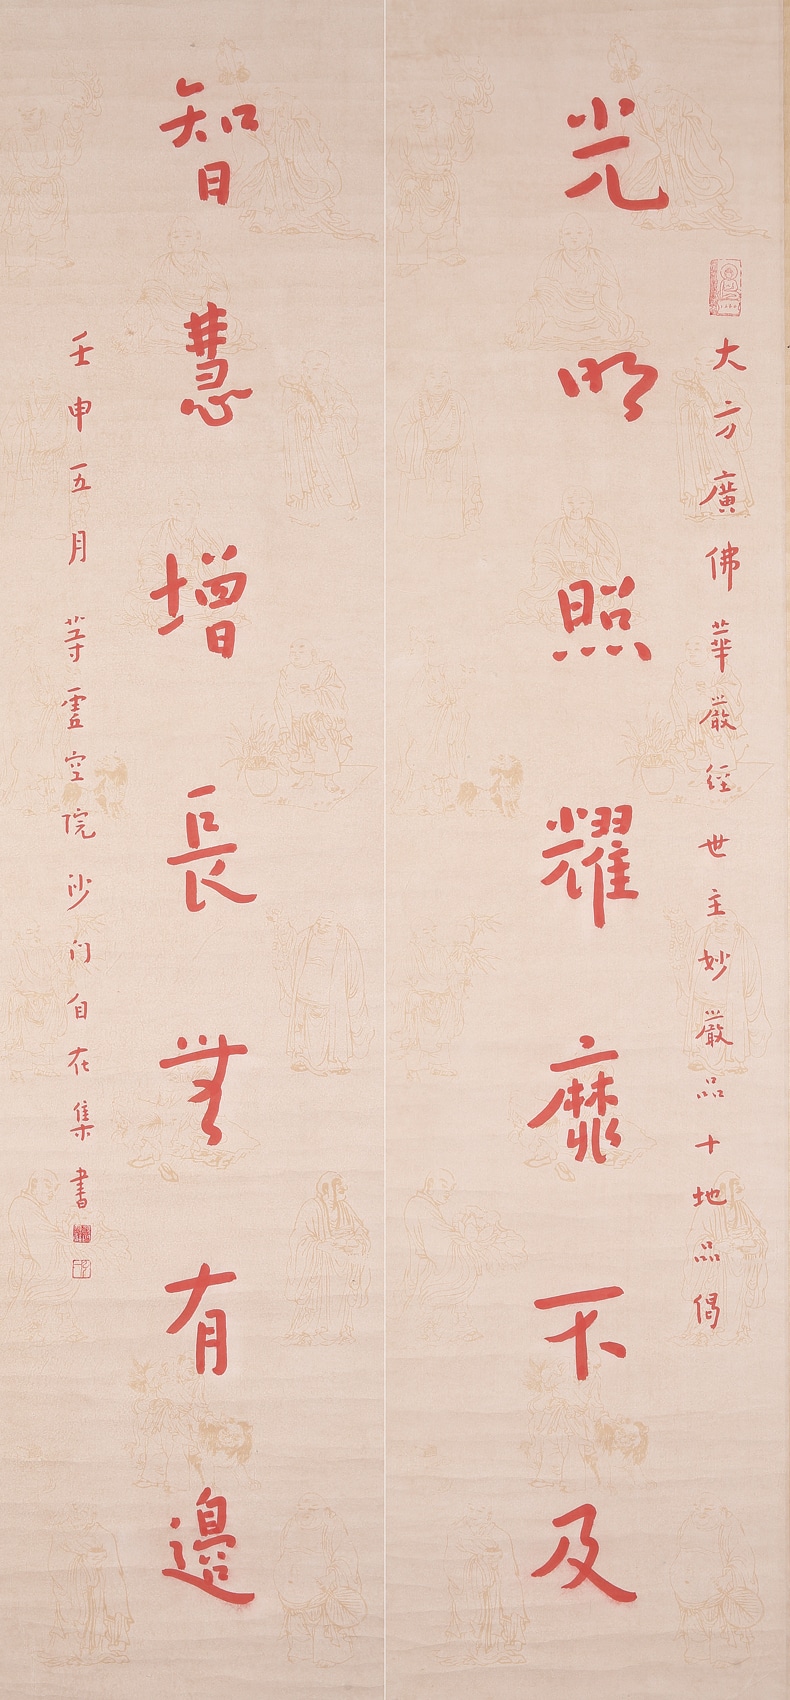 大方廣佛華嚴經世主妙嚴品十地品偈
光明照耀靡不及
智慧增長無有邊
壬申五月等虛空院沙門自在集書